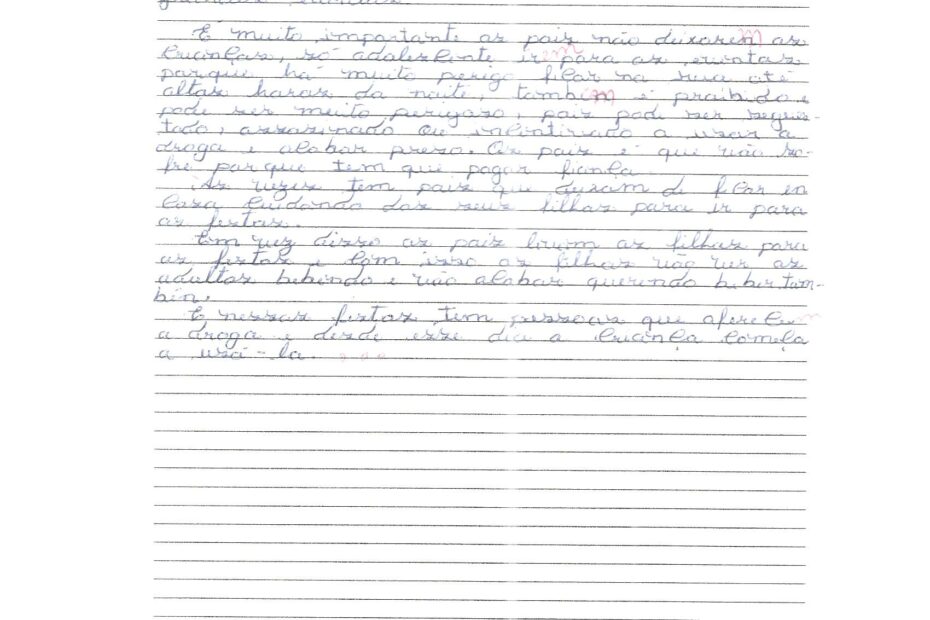 É muito importante os pais não deixarem as
crianças, só adolescente irem para as eventos
porque há muito perigo ficar na rua até
altas horas da noite, também é proibido e
pode ser muito perigoso, pois pode ser seques-
tado, assasinado ou incentivado a usar a
droga e acabar preso. Os pais é que vão so-
fre porque tem que pagar fiança.
As vezes tem pais que deixam de ficar en
casa cuidando dos seus filhos para ir para
as festas.
Em vez disso os pais levem os filhos para
as festas e com isso os filhos vão ver os
adultos bebendo e vão acabar querendo beber tam-
bén.
E nessas festas tem pessoas que oferecem
a droga e desde esse dia a criança começa
a usá-la. ...